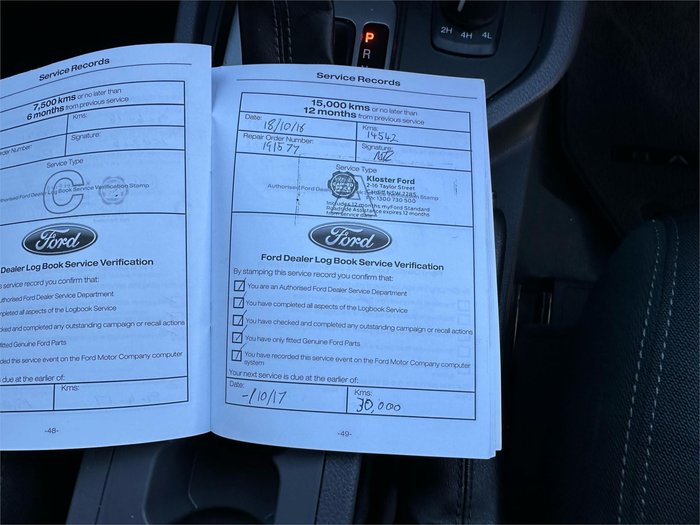 P
R
2H 4H 4L
Service Records
7,500 kms or no later than
6 months from previous service
Kms:
Order Number:
Signature:
Service Type
Authorised Ford Dealer Log Book Service Verification Stamp
C
Ford
Dealer Log Book Service Verification
this service record you confirm that:
uthorised Ford Dealer Service Department
mpleted all aspects of the Logbook Service
cked and completed any outstanding campaign or recall actions
fitted Genuine Ford Parts
ded this service event on the Ford Motor Company computer
due at the earlier of:
Kms:
-48-
Service Records
15,000 kms or no later than
12 months from previous service
Date: 18/10/16
Kms: 14542
Repair Order Number: 191577
Signature:
Service Type
A
Authorised Ford Dealer Log Book Service Verification Stamp
Kloster Ford
2-16 Taylor Street
Cardiff NSW 2285
Ph: 1300 730 500
Includes 12 months myFord Standard
Roadside Assistance expires 12 months
from service date
Ford
Ford Dealer Log Book Service Verification
By stamping this service record you confirm that:
You are an Authorised Ford Dealer Service Department
You have completed all aspects of the Logbook Service
You have checked and completed any outstanding campaign or recall actions
You have only fitted Genuine Ford Parts
You have recorded this service event on the Ford Motor Company computer
system
Your next service is due at the earlier of:
Date: -/10/17
Kms: 30,000
-49-